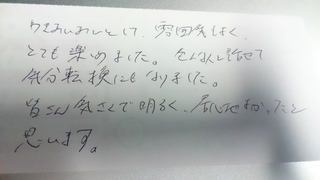 わきあいあいとして、雰囲気もよく、
とても楽めました。たくさん話せて
気分転換にもなりました。
皆さん気さくで明るく、居心地よかったと
思います。